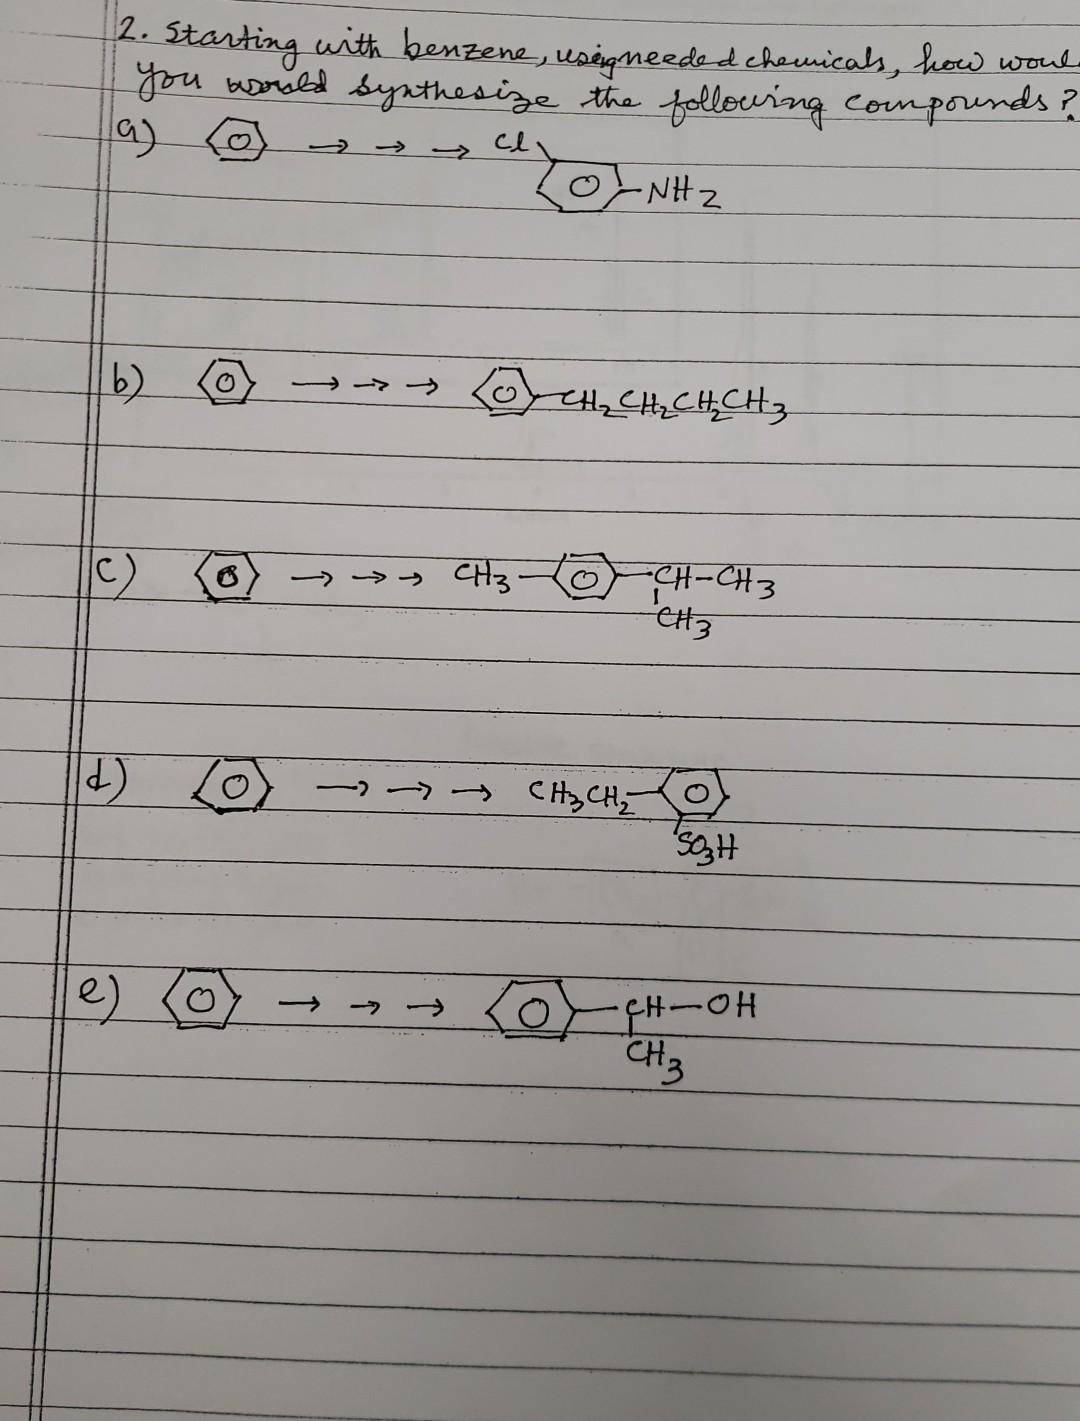 2. Starting with benzene, using needed chemicals, how woul
you would synthesize the following compounds?
a) → → → Cl
NH2
b) → → → CH2CH2CH2CH3
c) → → → CH3 CH-CH3
CH3
d) → → → CH3CH2
SO3H
e) → → → CH-OH
CH3